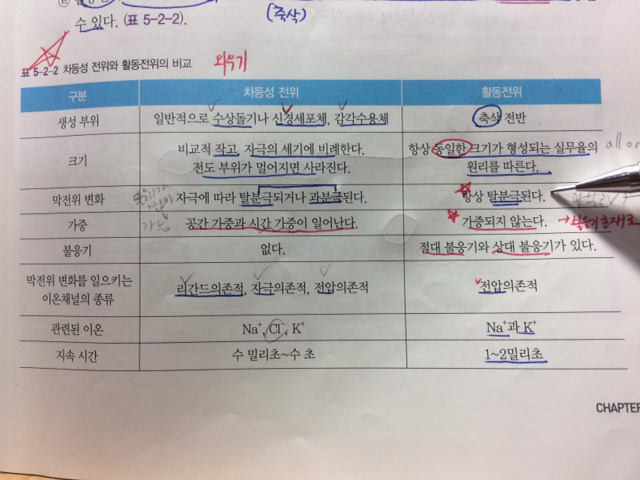 수 있다. (표 5-2-2).
(축삭)
표 5-2-2 차등성 전위와 활동전위의 비교
외우기
구분 차등성 전위 활동전위
생성 부위 일반적으로 수상돌기나 신경세포체, 감각수용체 축삭 전반
크기 비교적 작고, 자극의 세기에 비례한다. 항상 동일한 크기가 형성되는 실무율의
전도 부위가 멀어지면 사라진다. 원리를 따른다.
all or
막전위 변화 자극에 따라 탈분극되거나 과분극된다. 항상 탈분극된다.
가중 공간 가중과 시간 가중이 일어난다. 가중되지 않는다.
불응기 없다. 절대 불응기와 상대 불응기가 있다.
막전위 변화를 일으키는
이온채널의 종류 리간드의존적, 자극의존적, 전압의존적 전압의존적
관련된 이온 Na⁺, Cl⁻, K⁺ Na⁺과 K⁺
지속 시간 수 밀리초~수 초 1~2밀리초
CHAPTER